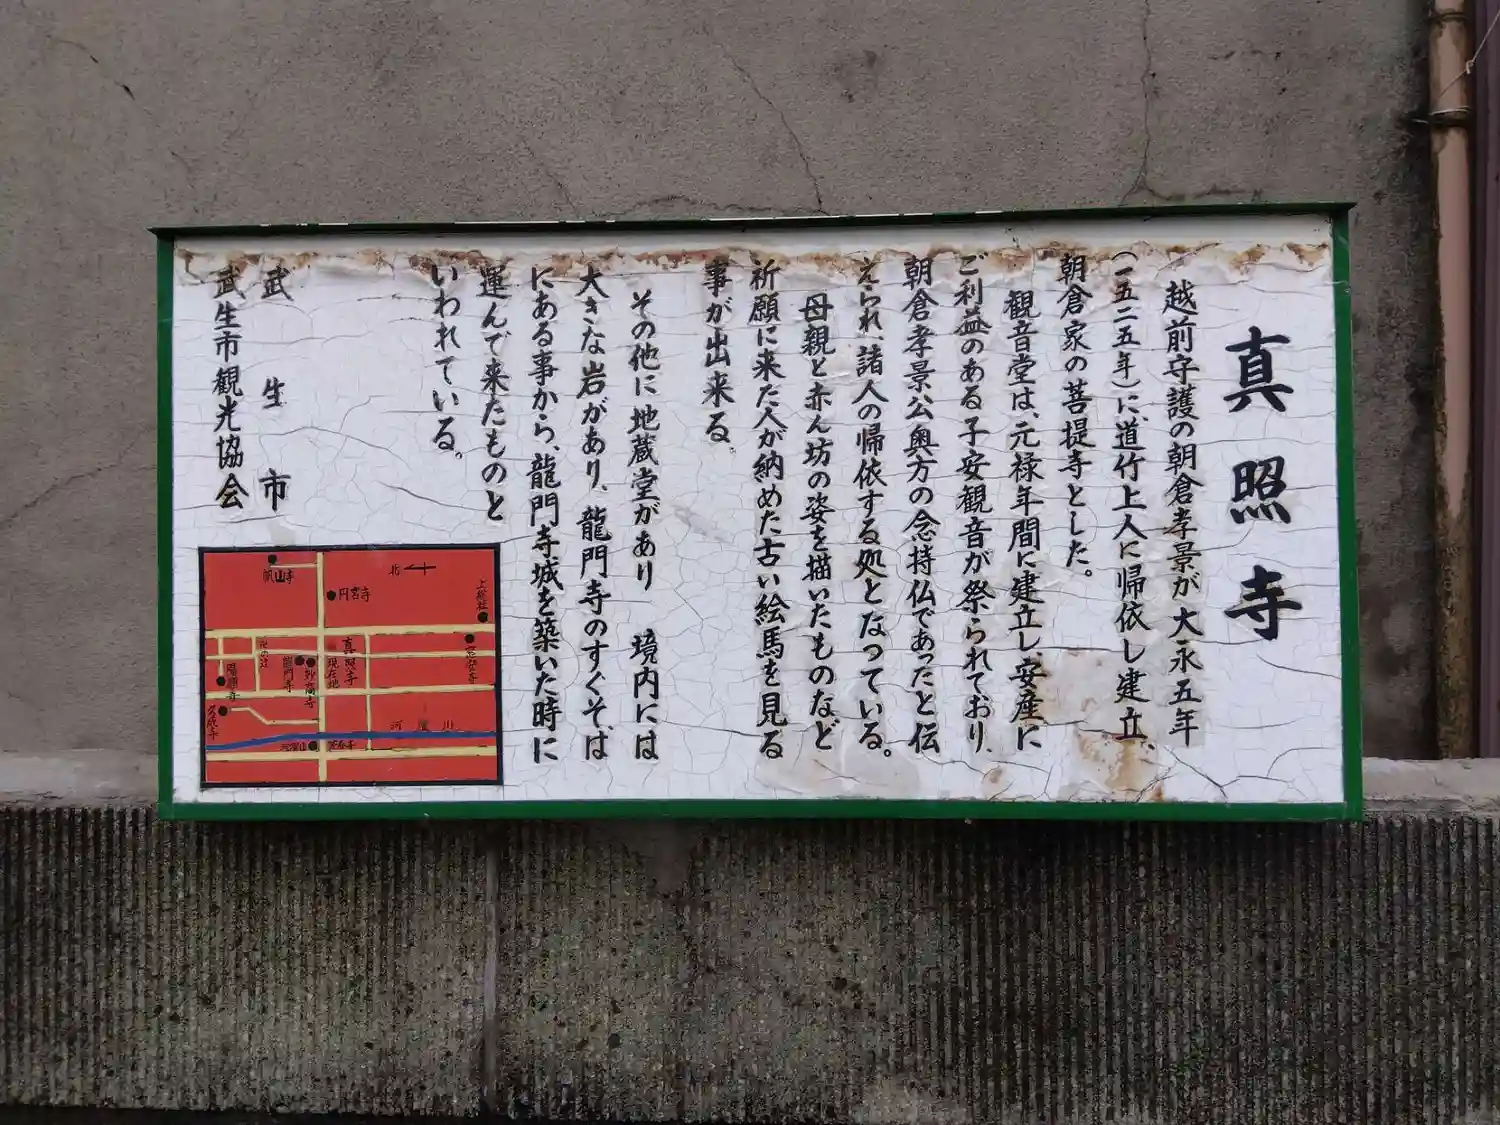 真照寺
越前守護の朝倉孝景が大永五年
(一五二五年)に、道竹上人に帰依し建立、
朝倉家の菩提寺とした。
観音堂は、元禄年間に建立し、安産に
ご利益のある子安観音が祭られており、
朝倉孝景公奥方の念持仏であったと伝
えられ、諸人の帰依する処となっている。
母親と赤ん坊の姿を描いたものなど
祈願に来た人が納めた古い絵馬を見る
事が出来る。
その他に地蔵堂があり 境内には
大きな岩があり、龍門寺のすぐそば
にある事から、龍門寺城を築いた時に
運んで来たものと
いわれている。
武生市
武生市観光協会
帆山寺
北
円宮寺
上総社
真照寺
現在地
妙高寺
龍門寺
陽願寺
久成寺
河濯川
河濯山